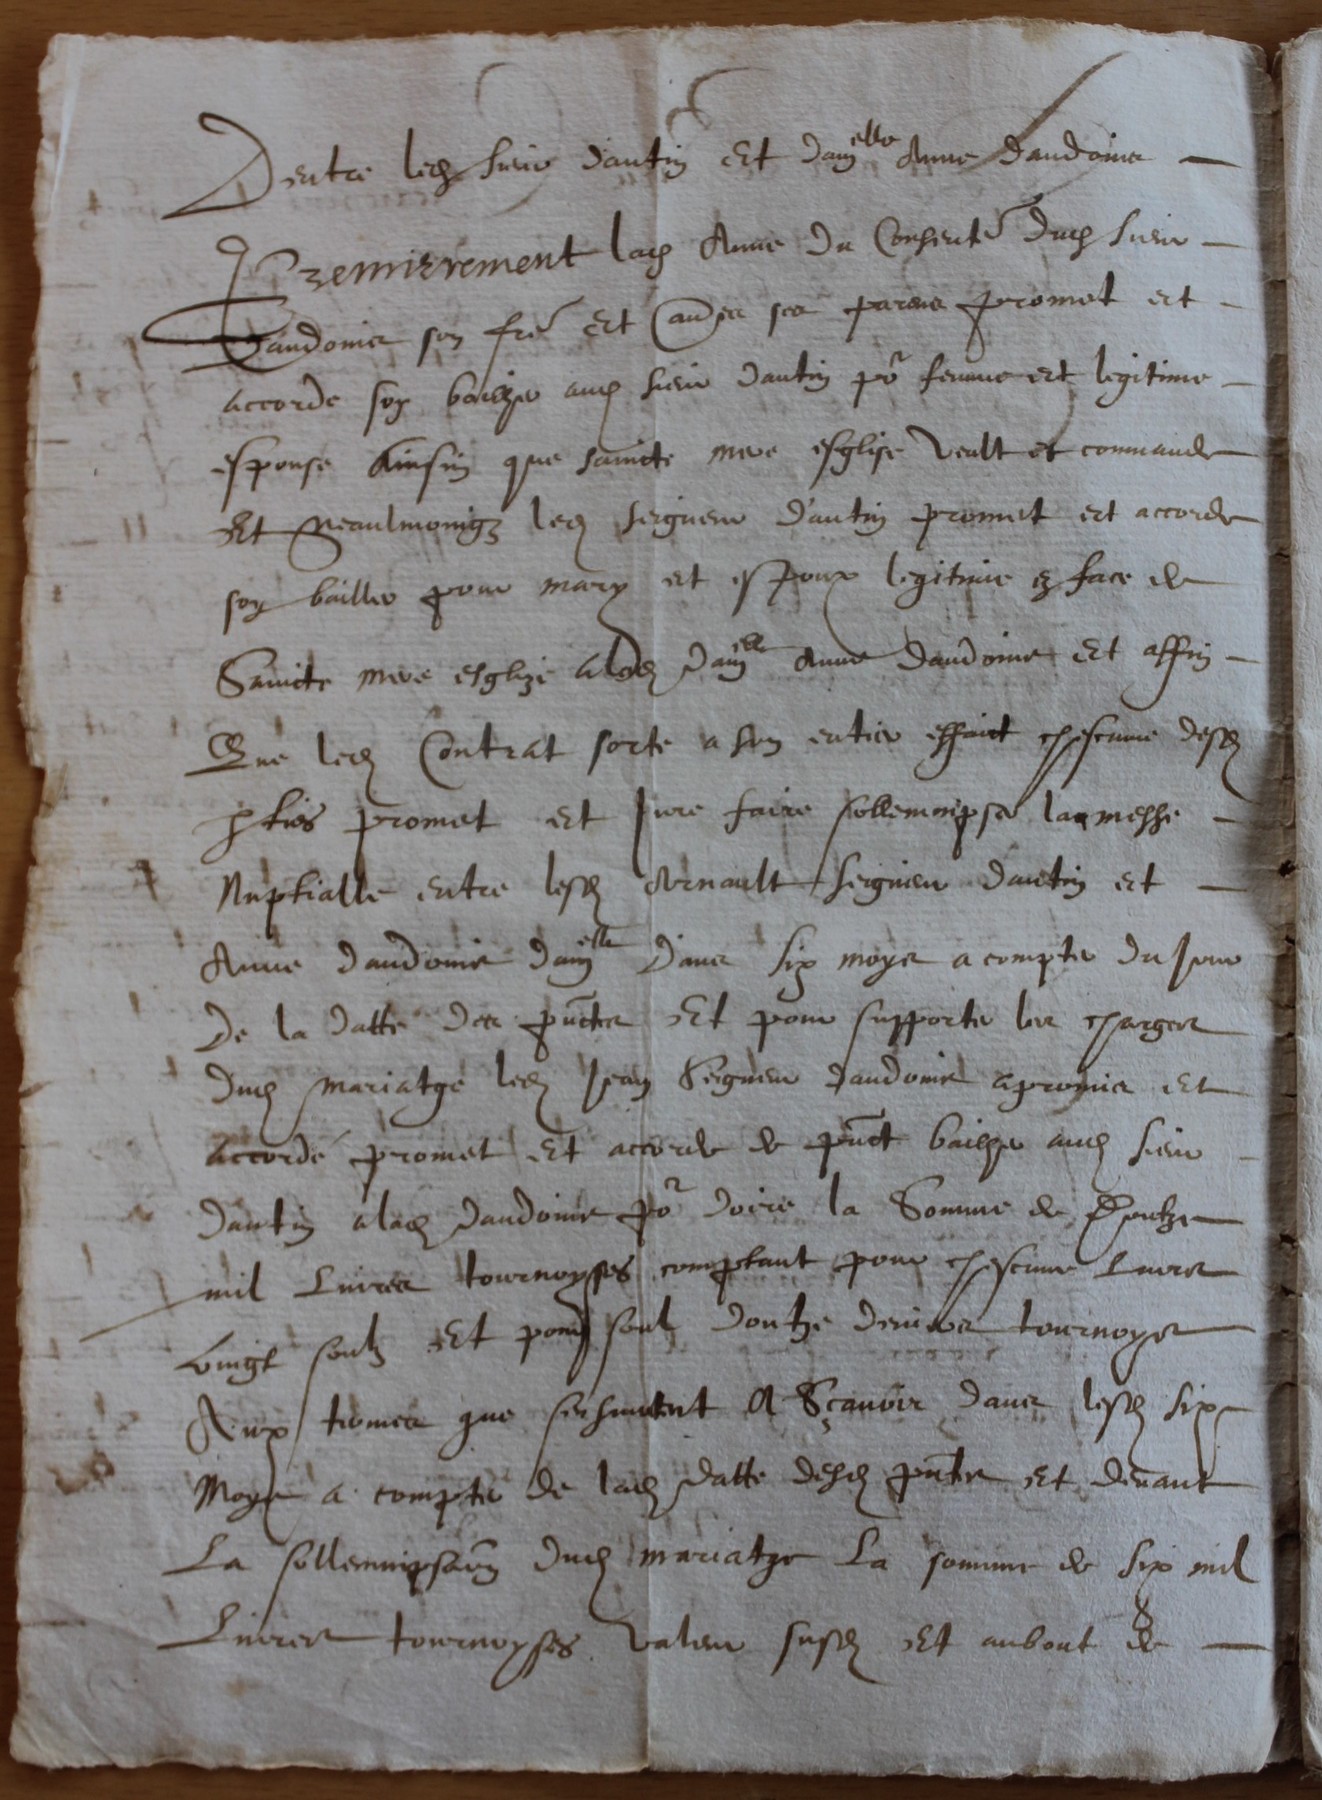 Dentre led sieur dantin Et dam^elle Anne dandoins
Premierement lad Anne du Consentem̃ dud sieur
Dandoins son frẽ Et autres ses parens promet et
accorde soy bailher aud sieur dantin põ femme et legitime
espouse Ainsin que saincte mere esglise veult et commande
Et led seigneur d'antin promet et accorde
soy bailler pour mary et espoux legitime en face de
Saincte mere esglize a lad dam^elle Anne dandoins Et affin
Que led Contrat sorte a son entier effaict chescune desd
parties promet Et Jure faire sollempniser la messe
Nuptialle entre lesd Arnault seigneur dantin et
Anne dandoins dam^elle Dans six moys a compter du Jour
De la datte des pñtes Et pour supporter les charges
Dud mariatge led Jean Seigneur dandoins a promis et
accordé promet Et accorde de pñt bailher aud sieur
dantin a lad dandoins põ doire la Somme de Doutze
mil Livres tournoyses comptant pour chescune Livre
vingt soulz Et pour soul doutze deniers tournoys
Aux termes que sensuivent A Sçavoir dans lesd six
Moys a compter de lad datte desd pñtes Et devant
La sollempnisaõn dud mariatge La somme de six mil
Livres tournoyses valeur susd Et au bout de